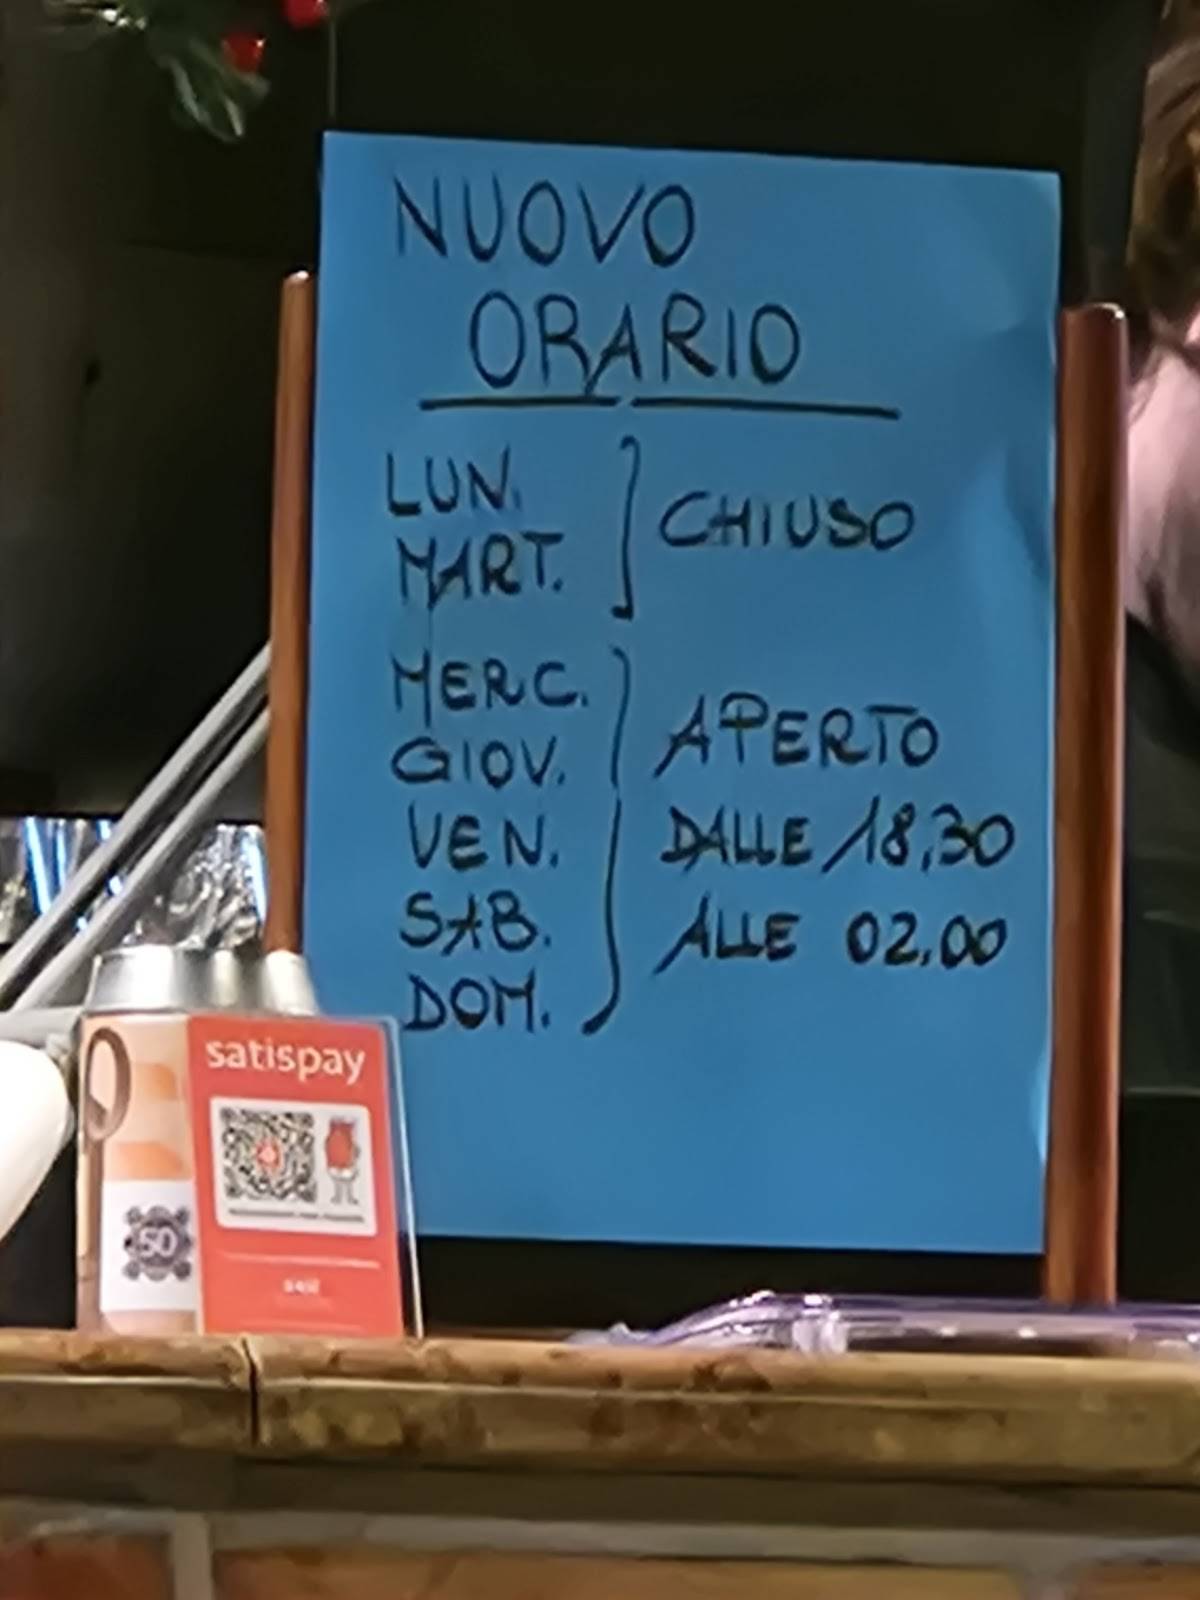 NUOVO
ORARIO
LUN.
MART.
CHIUSO
MERC.
GIOV.
VEN.
SAB.
DOM.
APERTO
DALLE 18,30
ALLE 02,00
satispay
50